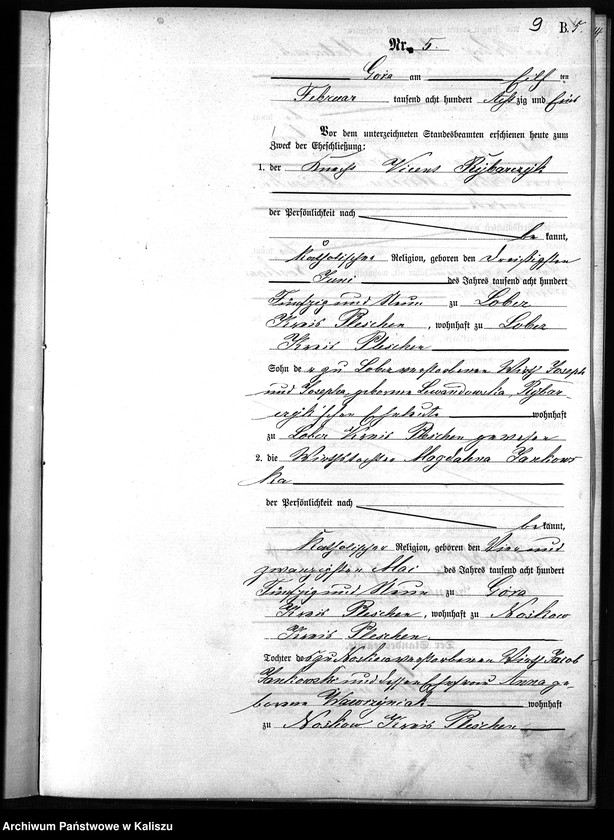 9 B. 5.
Nr. 5.
Gora am Elf ten
Februar tausend acht hundert Achtzig und Eins
Vor dem unterzeichneten Standesbeamten erschienen heute zum
Zweck der Eheschließung:
1. der Knecht Vicens Rybarczyk
der Persönlichkeit nach
be kannt,
katholischer Religion, geboren den dreißigsten
Juni des Jahres tausend acht hundert
Fünfzig und Neun zu Lober
Kreis Pleschen, wohnhaft zu Lober
Kreis Pleschen
Sohn der zu Lober verstorbenen Wirth Joseph
und Josepha geborene Lewandowska, Rybar
czyk'schen Eheleute wohnhaft
zu Lober Kreis Pleschen gewesen
2. die Wirthstochter Magdalena Jankows
ka
der Persönlichkeit nach
be kannt,
katholischer Religion, geboren den Vier und
zwanzigsten Mai des Jahres tausend acht hundert
Fünfzig und Neun zu Gora
Kreis Pleschen, wohnhaft zu Noskow
Kreis Pleschen
Tochter des zu Noskow verstorbenen Wirth Jacob
Jankowski und dessen Ehefrau Anna ge-
borene Wawrzyniak wohnhaft
zu Noskow Kreis Pleschen
Archiwum Państwowe w Kaliszu